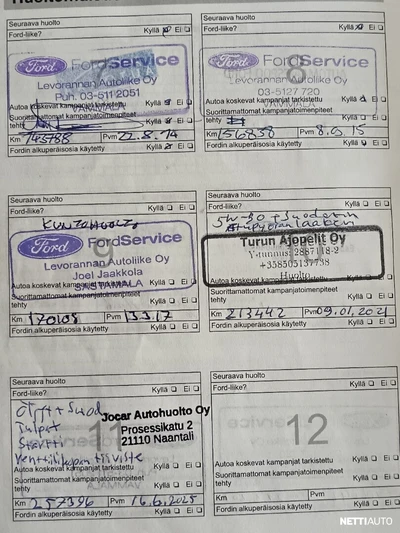 Seuraava huolto
Ford-liike? Kyllä Ei
Ford FordService
Levorannan Autoliike Oy
Puh. 03-511 2051
Autoa koskevat kampanjat tarkistettu Kyllä Ei
VAMMALA
Suorittamattomat kampanjatoimenpiteet
tehty Kyllä Ei
Km 145788 Pvm 22.8.14
Fordin alkuperäisosia käytetty Kyllä Ei
Seuraava huolto
Ford-liike? Kyllä Ei
8
Ford FordService
Levorannan Autoliike Oy
03-5127 720
Autoa koskevat kampanjat tarkistettu Kyllä Ei
VAMMALA
Suorittamattomat kampanjatoimenpiteet
tehty Kyllä Ei
Km 156838 Pvm 8.9.15
Fordin alkuperäisosia käytetty Kyllä Ei
Seuraava huolto
Ford-liike? Kyllä Ei
KUNTOHUOLTO
9
Ford FordService
Levorannan Autoliike Oy
Joel Jaakkola
Autoa koskevat kampanjat tarkistettu Kyllä Ei
SASTAMALA
Suorittamattomat kampanjatoimenpiteet
tehty Kyllä Ei
Km 170108 Pvm 13.3.17
Fordin alkuperäisosia käytetty Kyllä Ei
Seuraava huolto
Ford-liike? Kyllä Ei
5W-30 + Suodatin
Turun Ajopelit Oy
Y-tunnus: 2887118-2
+358505137738
Huolto
Autoa koskevat kampanjat tarkistettu Kyllä Ei
Suorittamattomat kampanjatoimenpiteet
tehty Kyllä Ei
Km 213442 Pvm 09.01.2021
Fordin alkuperäisosia käytetty Kyllä Ei
Seuraava huolto
Ford-liike? Kyllä Ei
Öljyt + Suod
Tulpat
Startti
Venttiilikopan tiiviste
11
Jocar Autohuolto Oy
Prosessikatu 2
21110 Naantali
Autoa koskevat kampanjat tarkistettu Kyllä Ei
Suorittamattomat kampanjatoimenpiteet
tehty Kyllä Ei
Km 257396 Pvm 16.6.2025
Fordin alkuperäisosia käytetty Kyllä Ei
Seuraava huolto
Ford-liike? Kyllä Ei
12
Autoa koskevat kampanjat tarkistettu Kyllä Ei
Suorittamattomat kampanjatoimenpiteet
tehty Kyllä Ei
Km Pvm
Fordin alkuperäisosia käytetty Kyllä Ei
NETTIAUTO